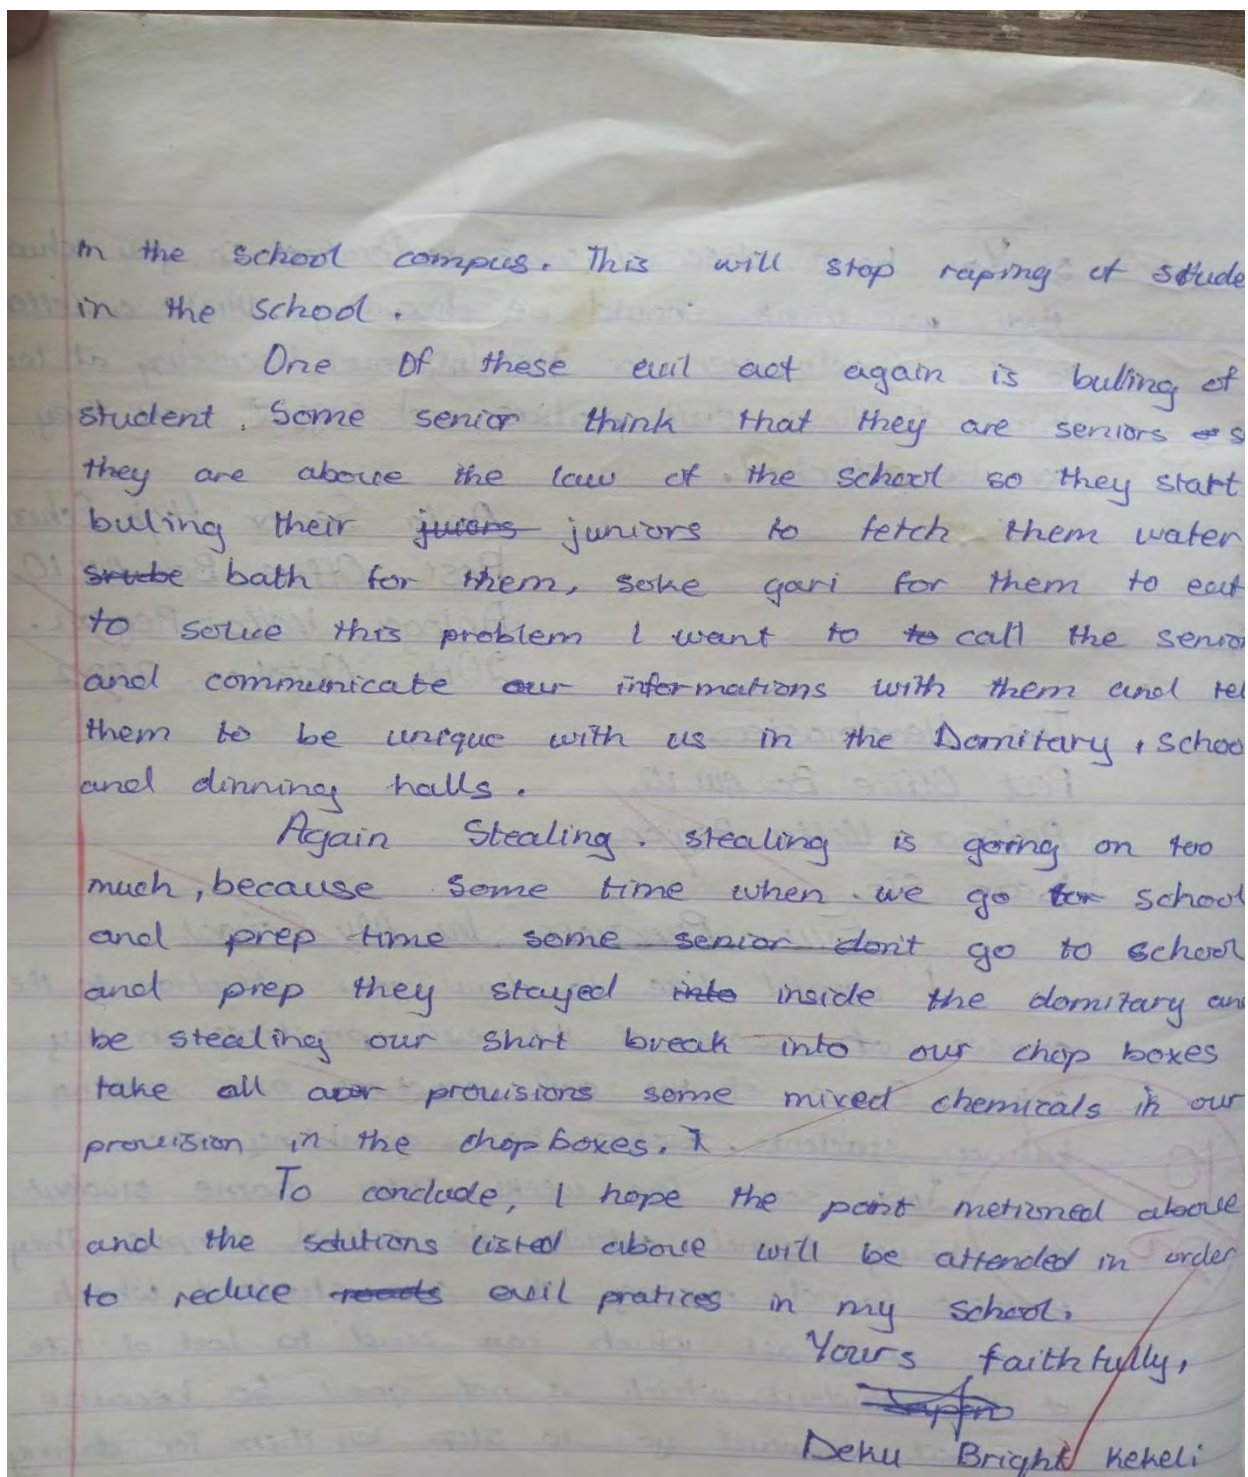 in the school compus. This will stop raping of stude
in the school.
One of these evil act again is buling of
student. Some senior think that they are seniors s
they are above the law of the school so they start
buling their juniors to fetch them water
bath for them, soke gari for them to eat
to solve this problem I want to call the senior
and communicate our informations with them and tel
them to be unique with us in the Domitary, schoo
and dinning halls.
Again Stealing. stealing is going on too
much, because some time when we go for school
and prep time some senior don't go to school
and prep they stayed inside the domitary and
be stealing our shirt break into our chop boxes
take all our provisions some mixed chemicals in our
provision in the chop boxes.
To conclude, I hope the point metioned above
and the solutions listed above will be attended in order
to reduce evil pratices in my school.
Yours faithfully,
Deku Bright Kekeli